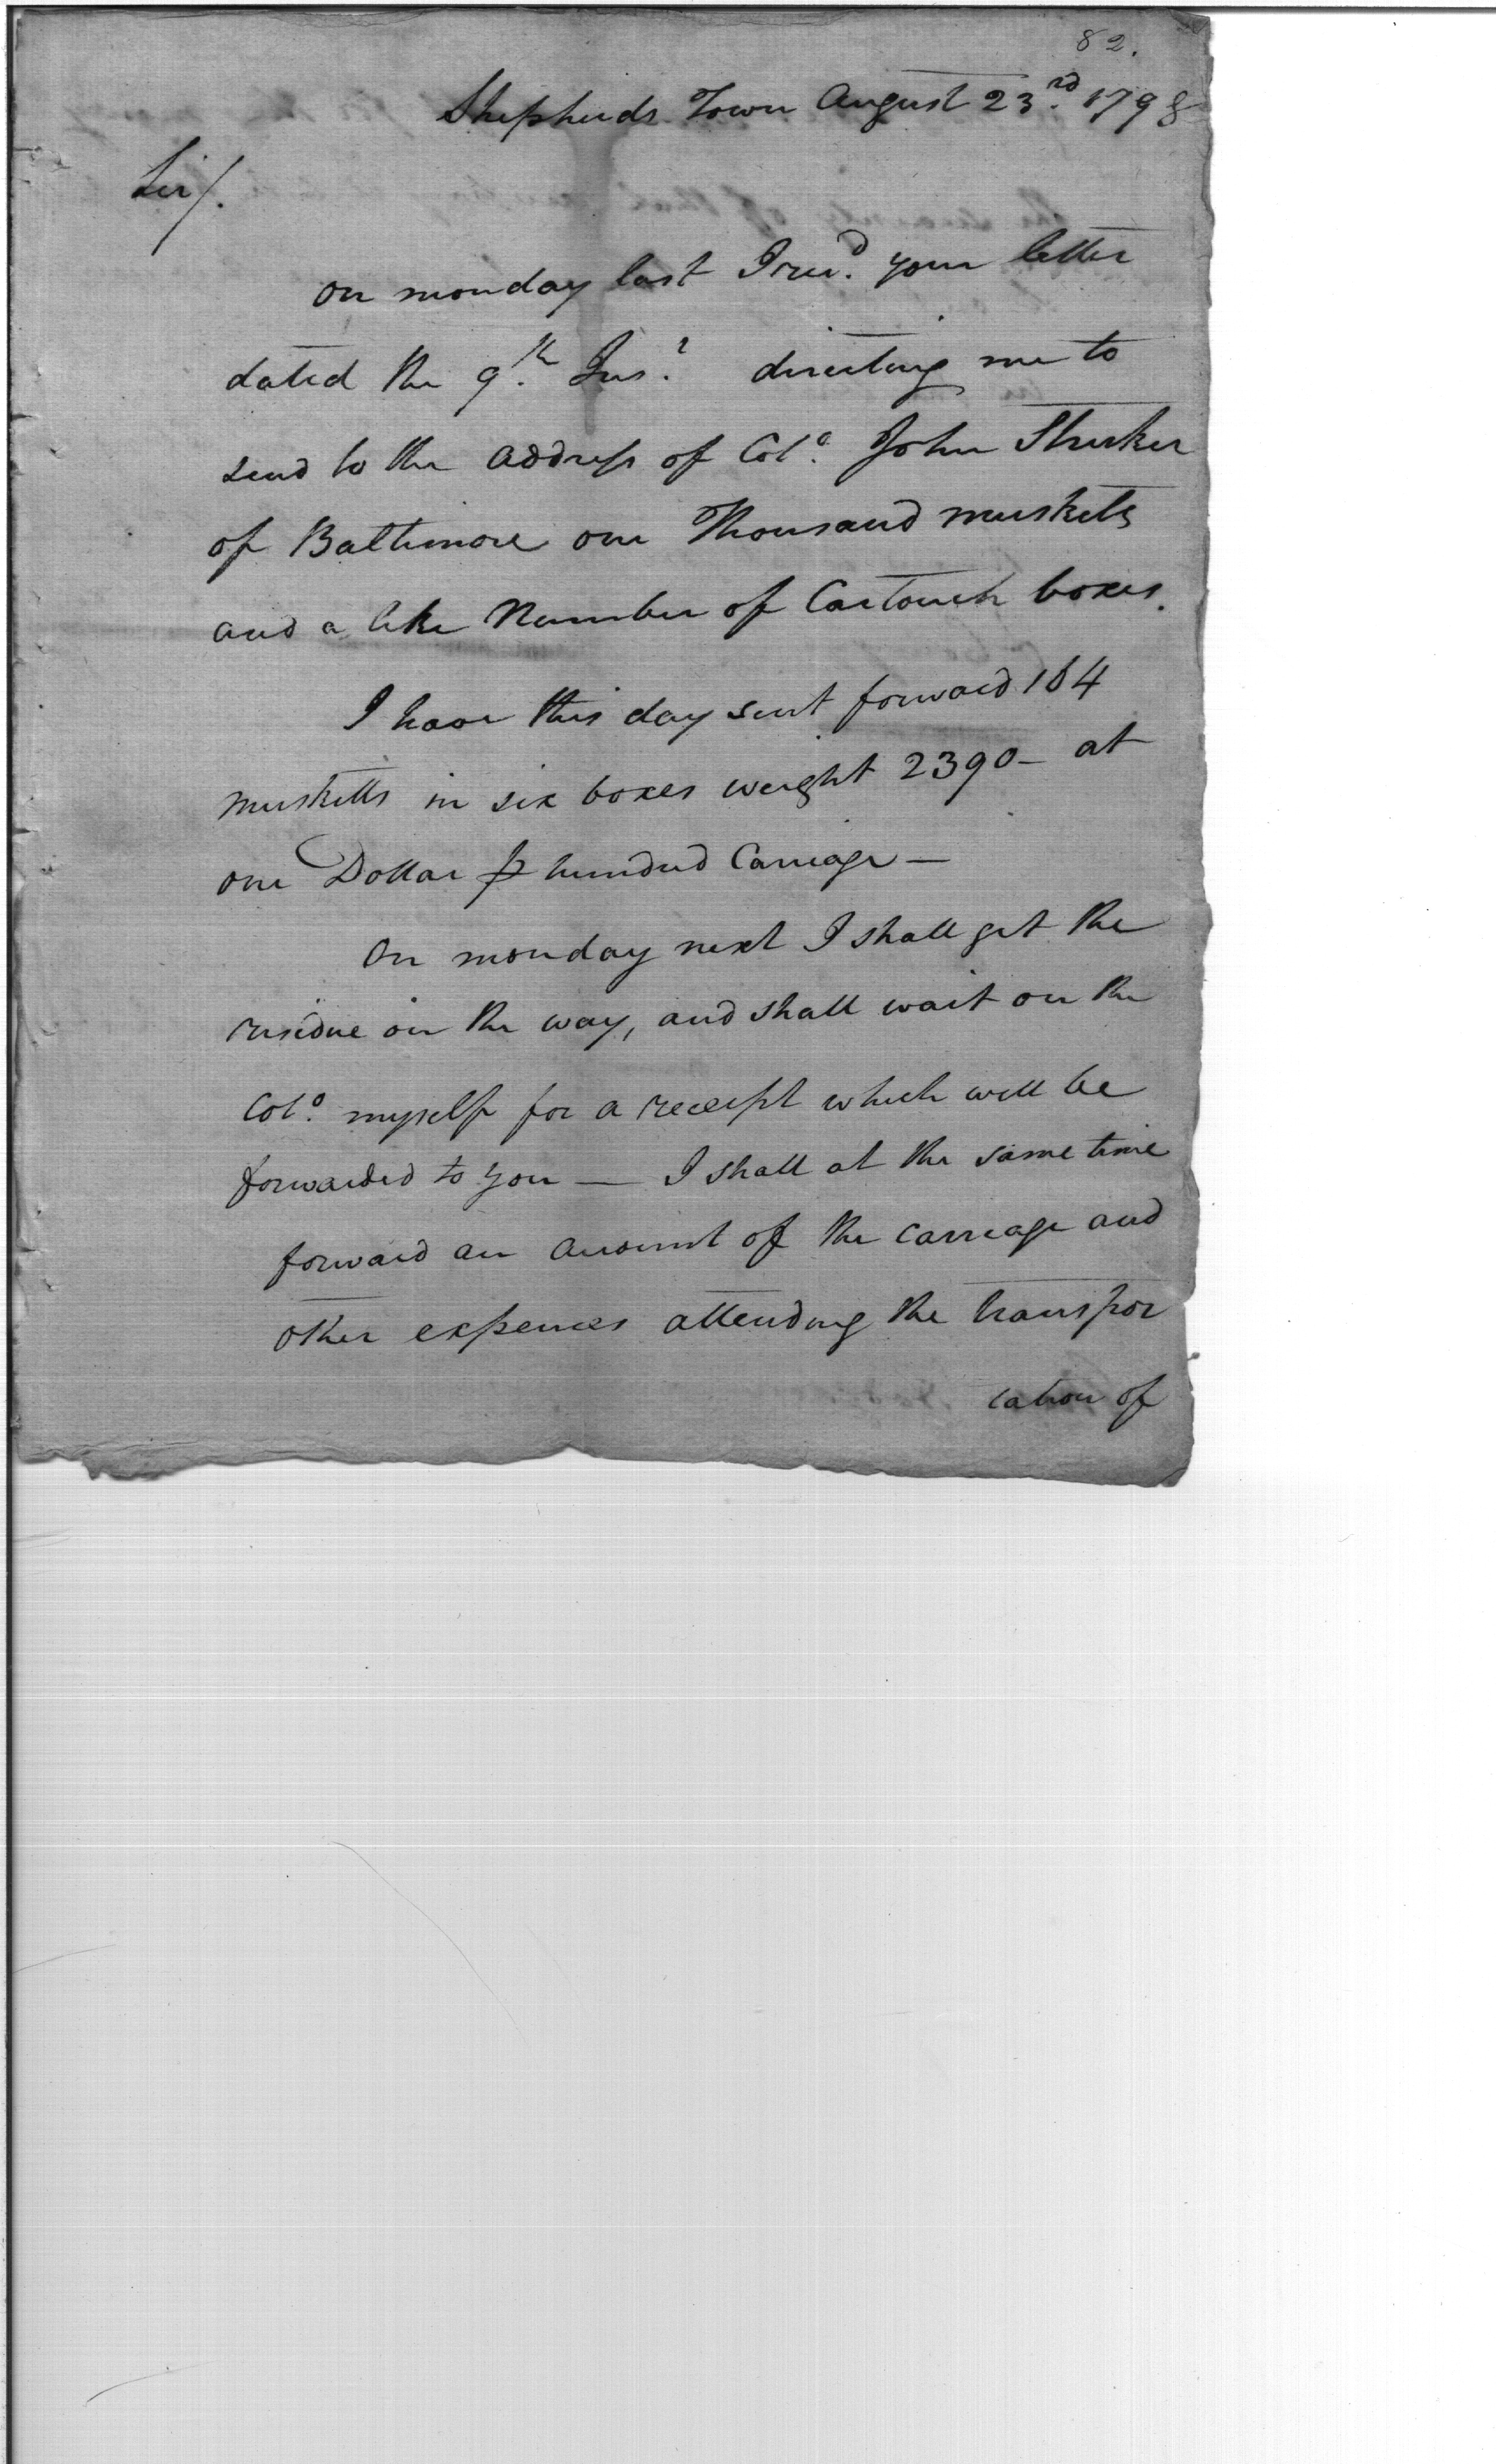 82.
Shepherds Town August 23rd. 1798
Sir/.
On monday last I recd. your letter
dated the 9th. Inst. directing me to
send to the address of Colo. John Stricker
of Baltimore one Thousand muskets
and a like Number of Cartouch boxes.
I have this day sent forward 164
musketts in six boxes weight 2390 — at
one Dollar ⅌ hundred Carriage —
On monday next I shall get the
residue on the way, and shall wait on the
Colo. myself for a receipt which will be
forwarded to you — I shall at the same time
forward an account of the carriage and
other expences attending the transpor
tation of